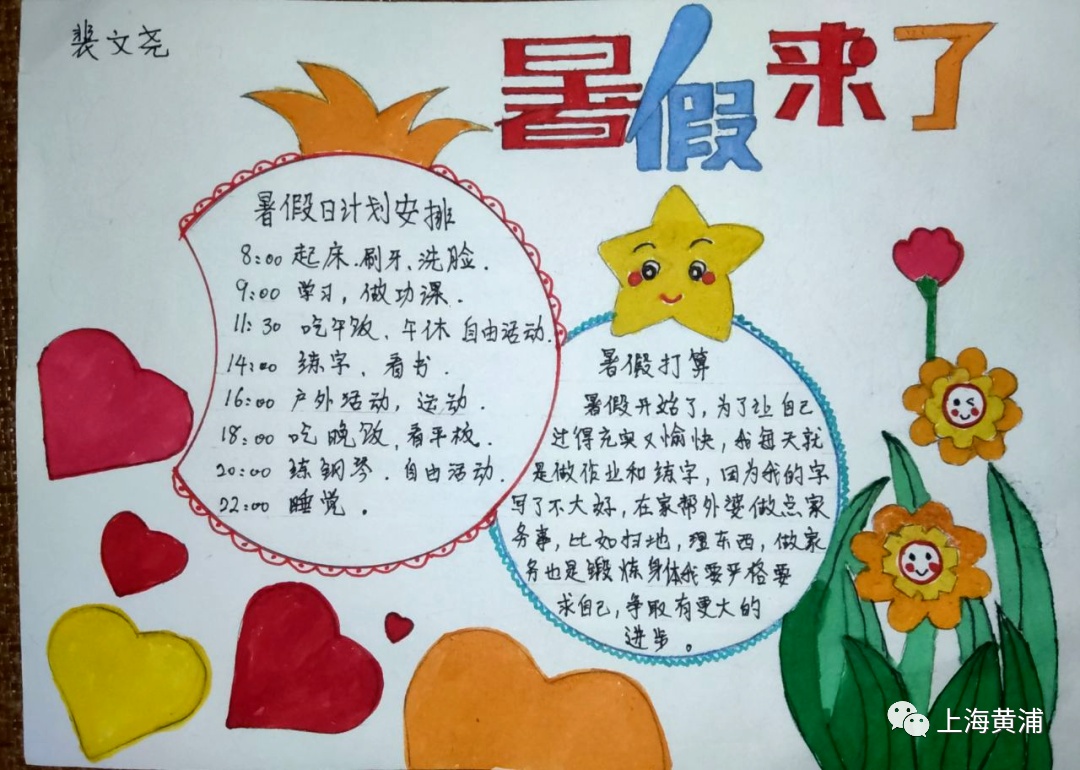 裴文尧
暑假来了
暑假日计划安排
8:00 起床.刷牙、洗脸.
9:00 学习，做功课.
11:30 吃午饭、午休 自由活动.
14:00 练字、看书.
16:00 户外活动，运动.
18:00 吃晚饭，看平板.
20:00 练钢琴.自由活动.
22:00 睡觉。
暑假打算
暑假开始了，为了让自己
过得充实又愉快，我每天就
是做作业和练字，因为我的字
写了不大好，在家帮外婆做点家
务事，比如扫地，理东西，做家
务也是锻炼身体我要严格要
求自己，争取有更大的
进步。
上海黄浦